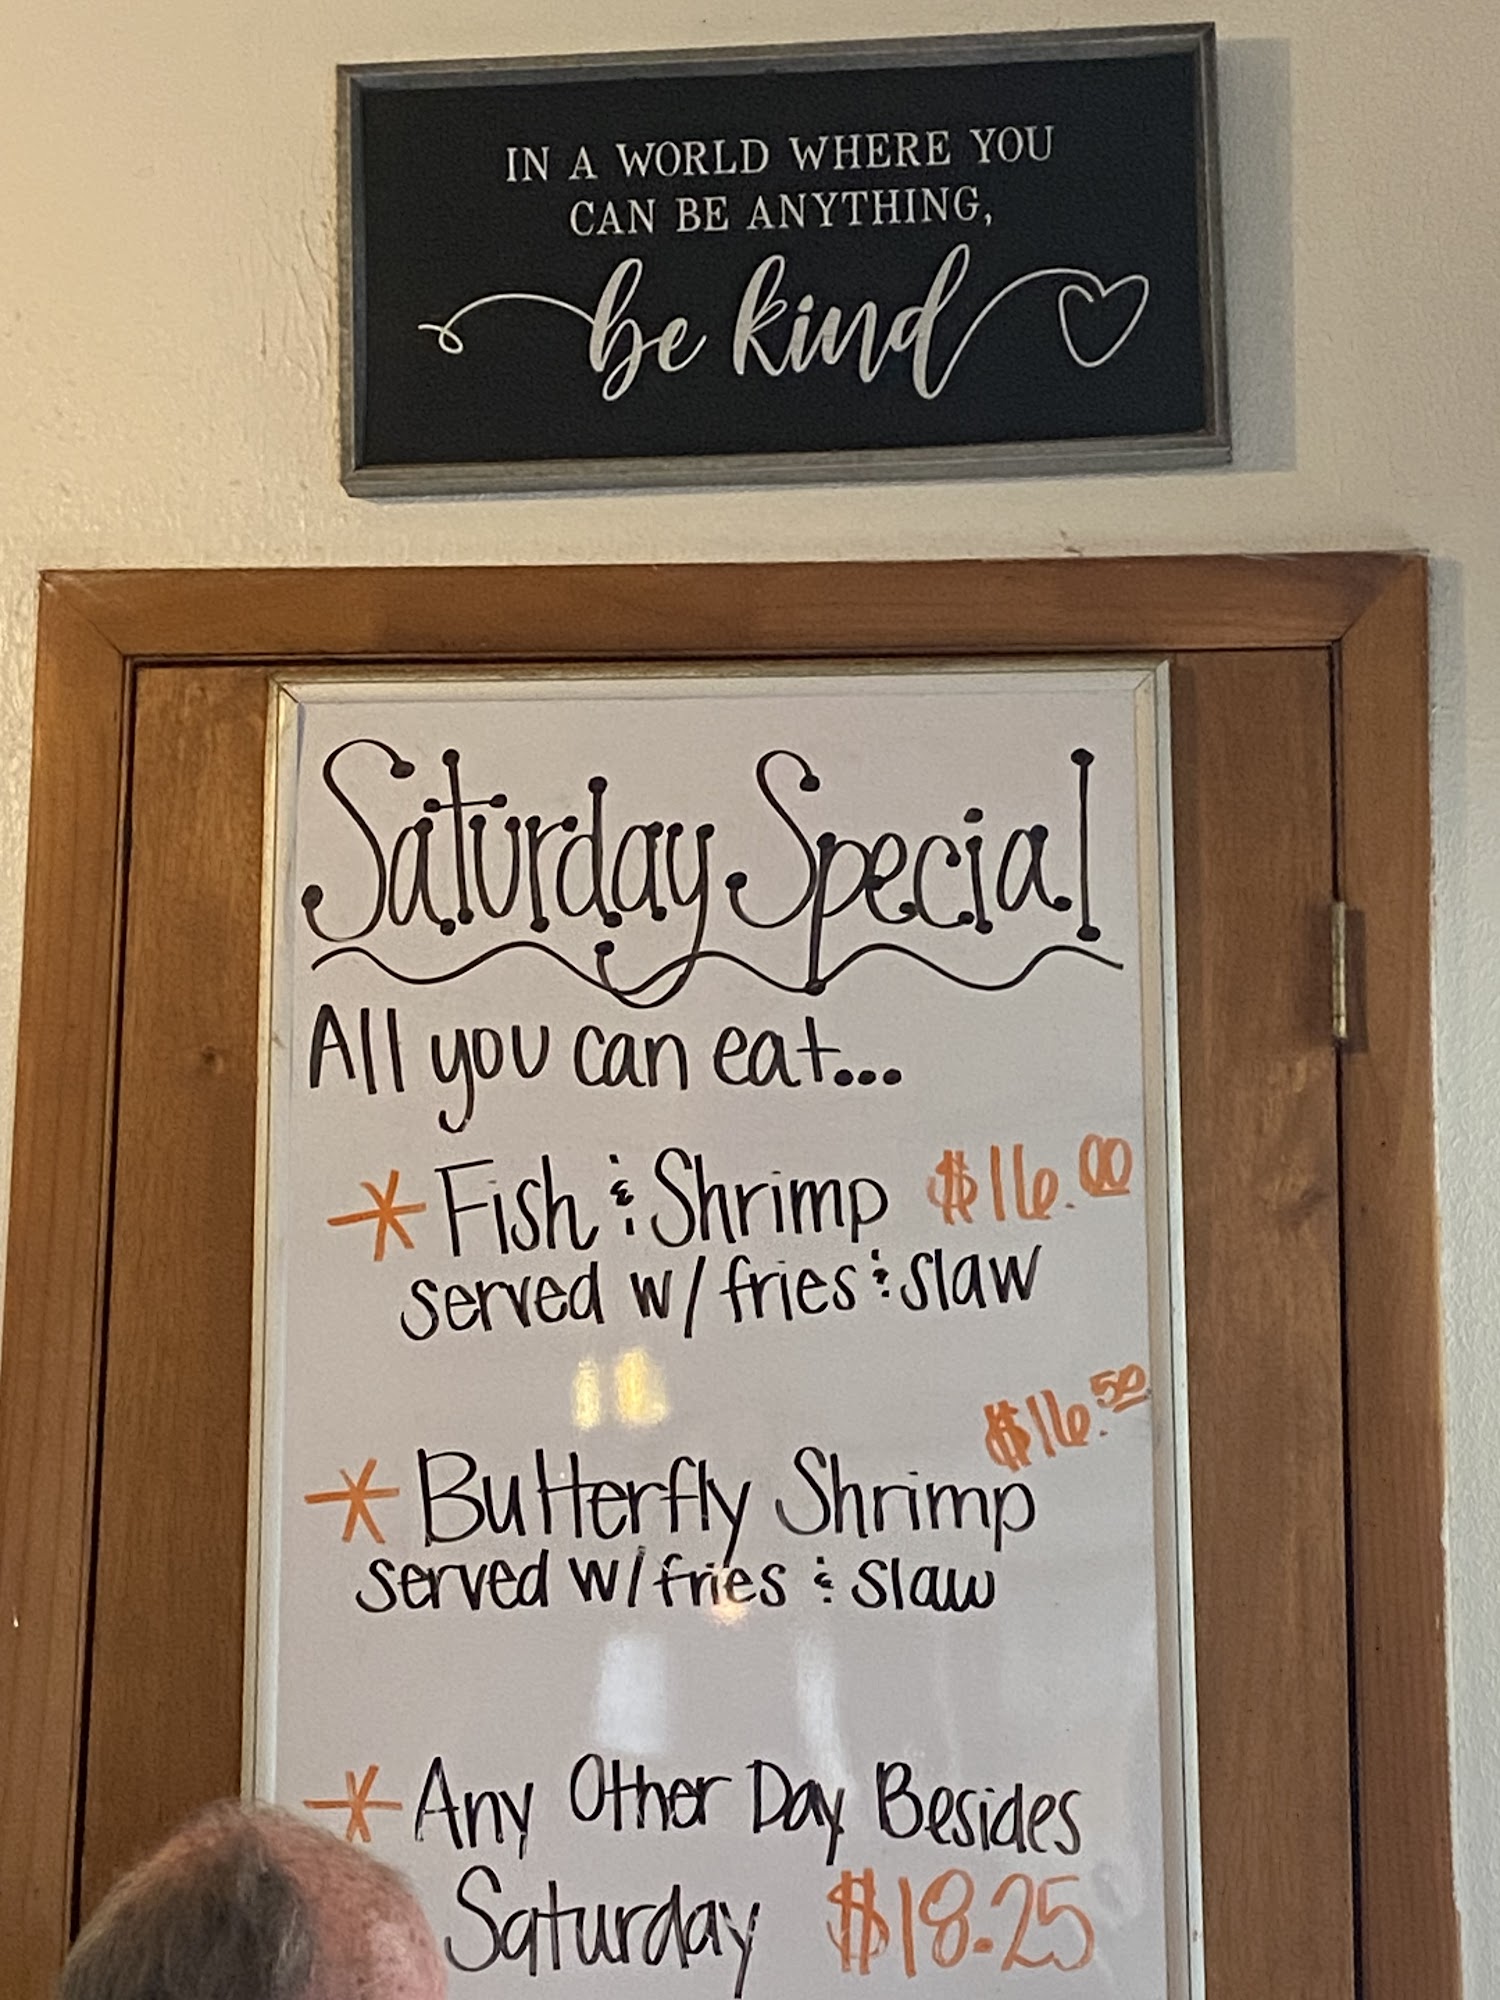 IN A WORLD WHERE YOU
CAN BE ANYTHING,
be kind
Saturday Special
All you can eat...
* Fish & Shrimp $16.00
served w/ fries & slaw
$16.50
* Butterfly Shrimp
served w/ fries & slaw
* Any Other Day Besides
Saturday $18.25